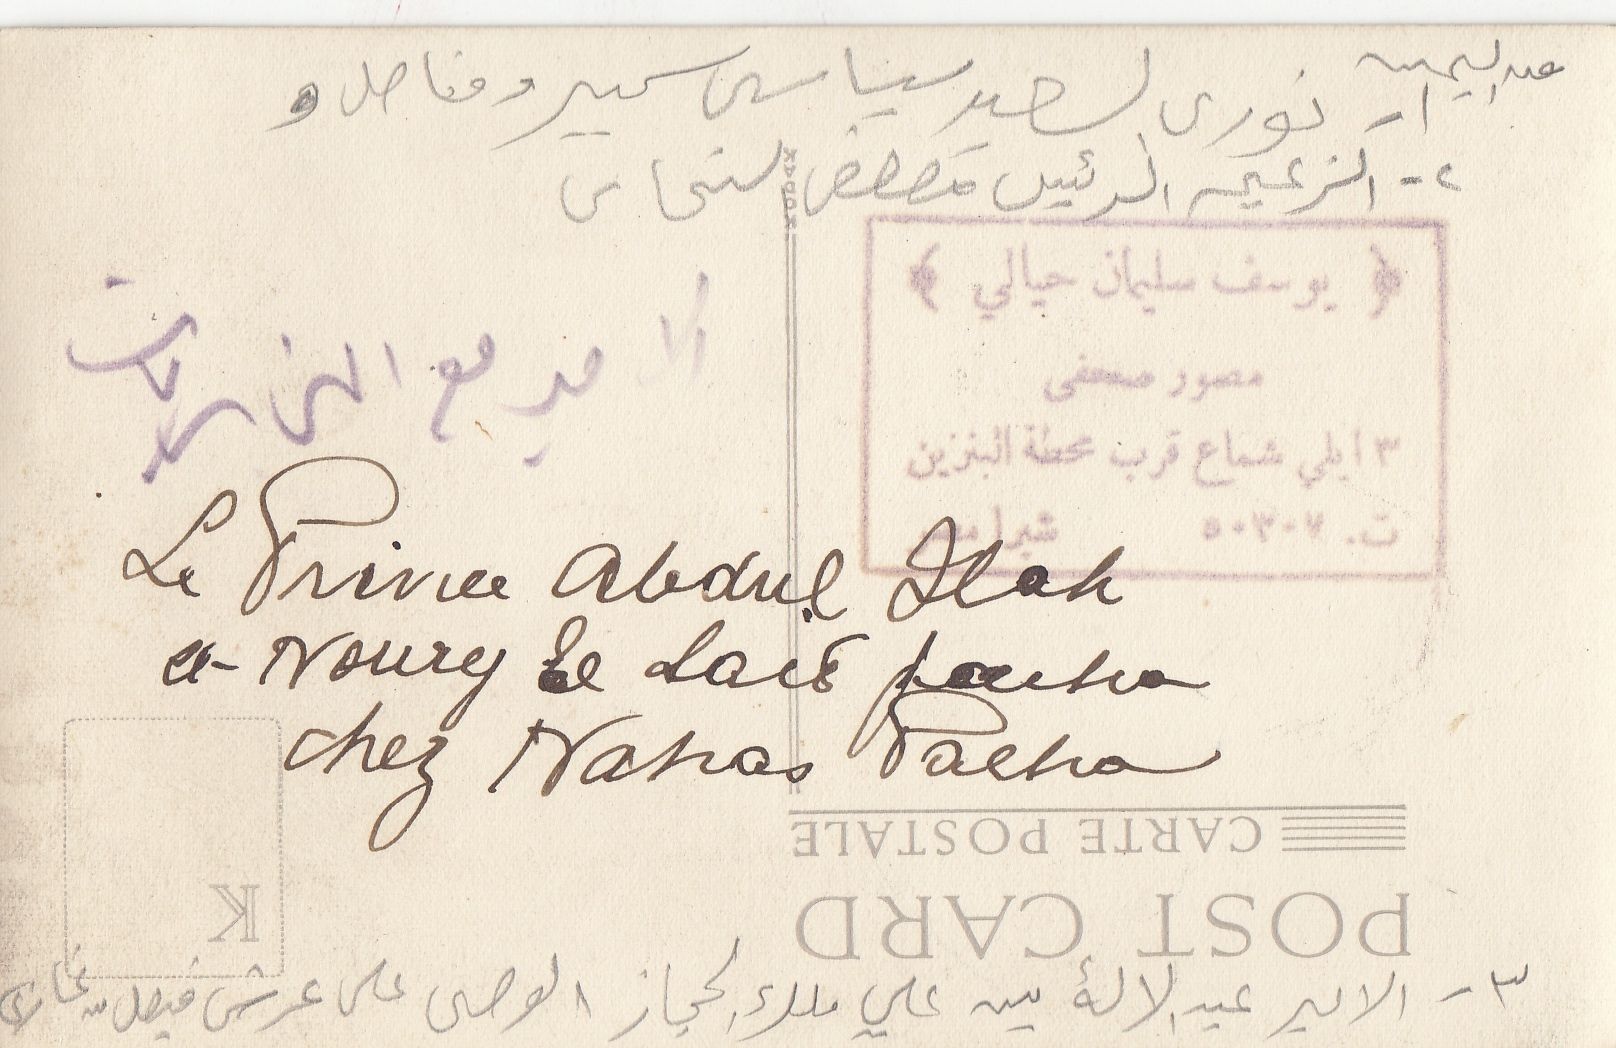 عن اليمين
١- نوري السعيد سياسي كبير ومناضل و
٢- الزعيم الرئيس مصطفى النحاس
يوسف سليمان حيالي
مصور صحفى
٣ ايلي شماع قرب محطة البنزين
ت. ٥٠٣٠٧ شبرا مصر
مع
Le Prince Abdul Ilah
et Noury El Said pacha
chez Nahas Pacha
CARTE POSTALE
POST CARD
K
KODAK
٣- الامير عبد الالة بن علي ملك الحجاز الوصى على عرش فيصل بن غازى